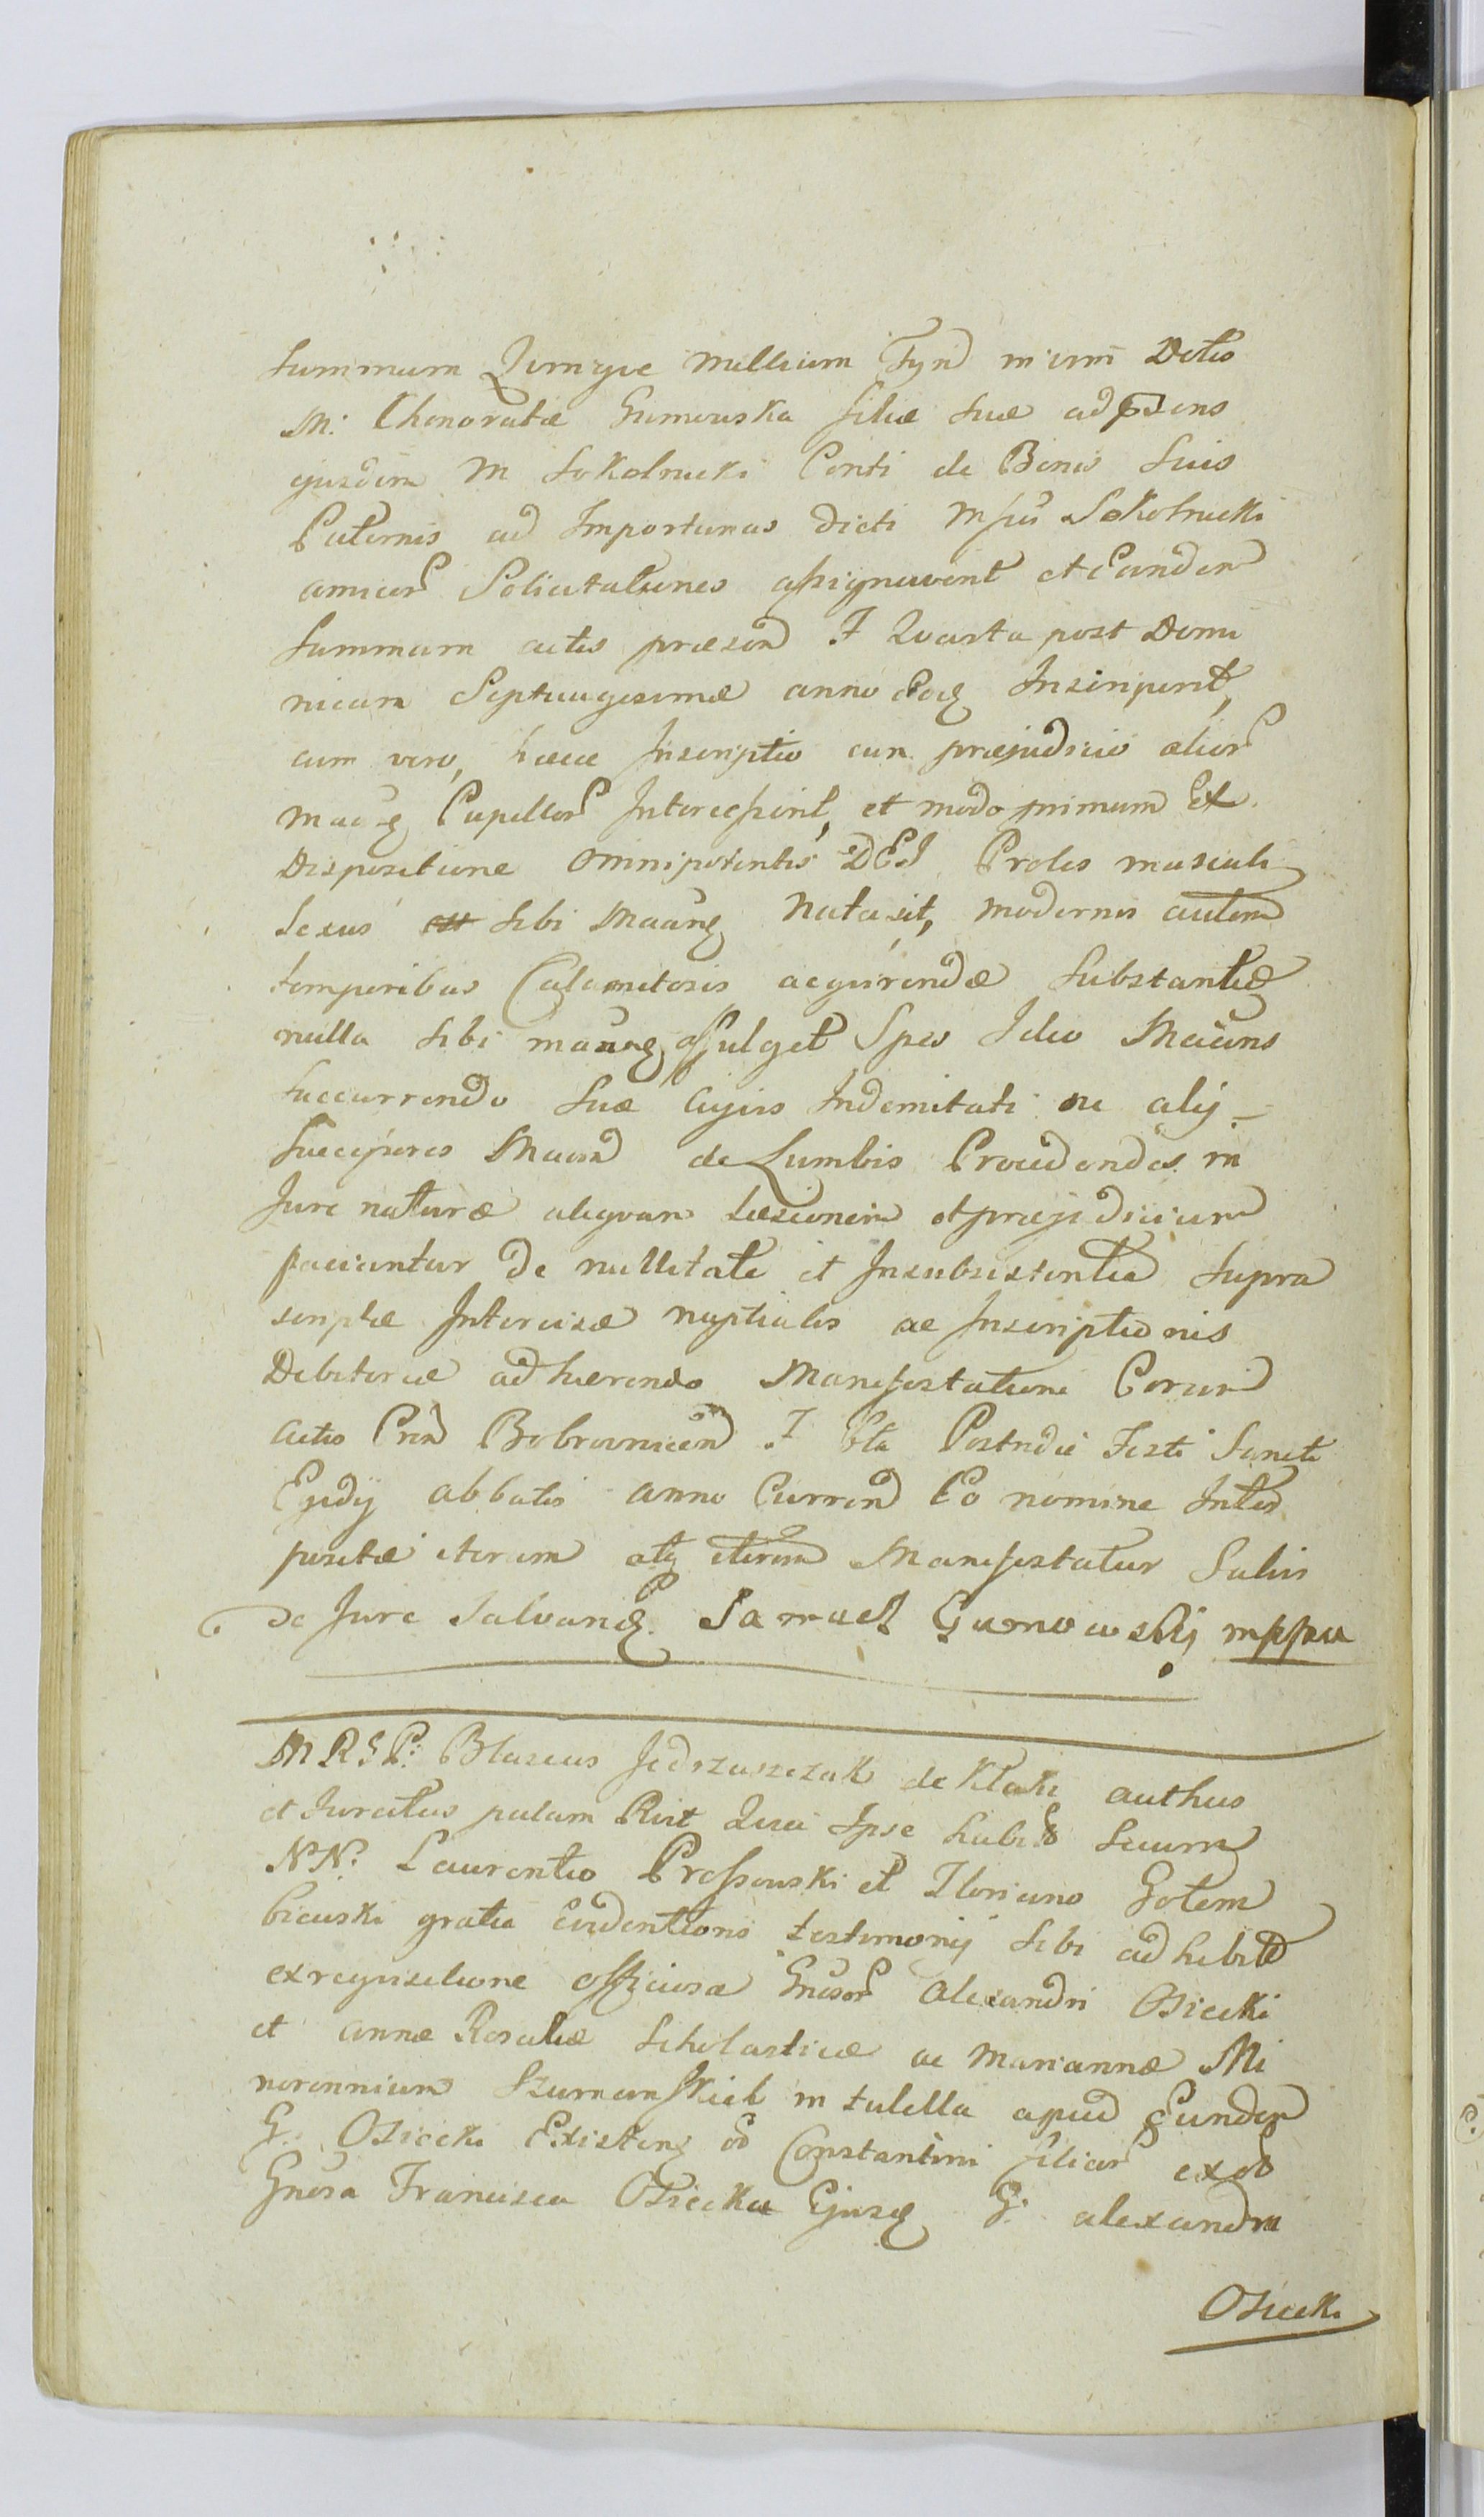 Summam Quinque Millium Tynd in vim Dotis
M: Chonoratæ Gumowska filiæ suæ ad psens
ejusdem M Sokolnicki Conti de Bonis Suis
Paternis ad Importunas dicti Mfici Sokolnicki
amicor Solicitationes assignaverit et Eandem
Summam actis præsend F Quarta post Domi
nicam Septuagesimæ anno Eoq Inscripserit,
cum vero, hæcce Inscriptio cum præjudicio alior
Maāng Pupillor Intercesserit, et modo primum Ex
Dispositione Omnipotentis DEI Proles masculi
Sexus sibi Maang Nata sit, modernis autem
temporibus Calamitosis acquirendæ Substantiæ
nulla sibi maang affulget Spes Ideo Maans
succurrendo Suæ cujus Indemnitati ne alij
Successores Maand de Lumbis Procedendes in
Jure naturæ aliquam Læsionem et præjudicium
paciantur de nullitate et Insubsistentia Supra
scriptæ Intercisæ nuptialis ac Inscriptionis
Debitoriæ adhærendo Manifestationi Coram
actis Prnd Bobrownicend F 6ta Postridie Festi Sancti
Egidij abbatis anno Currend Eo nomine Inter
positæ iterum atq iterum Manifestatur Salvis
de Jure Salvang. Samuel Gumowskij mppria
M R S P: Blasius Jedrzuszczak de Ktoki authus
et Juratus palam Rnt Quia Ipse habens Secum
NN: Laurentio Prossowski et Floriano Gotem
biewski gratia Evidentioris testimonij Sibi adhibitis
ex requisitione officiosa Gnosor Alexandri Osiecki
et annæ Rosaliæ Scholasticæ ac Mariannæ Mi
norennium Szumanskich in tutella apud Eundem
G. Osiecki Existeng od Constantini filior ex od
Gnosa Francisca Osiecka Ejusq G: alexandri
Osiecki